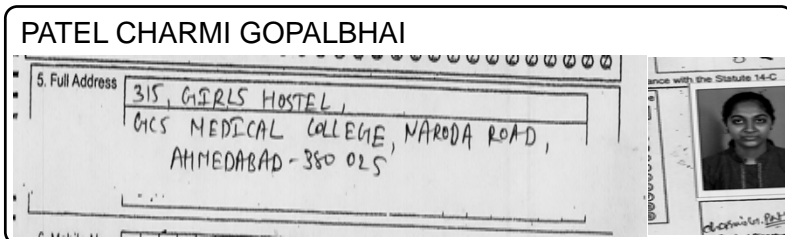 PATEL CHARMI GOPALBHAI
5. Full Address
315, GIRLS HOSTEL,
GCS MEDICAL COLLEGE, NARODA ROAD,
AHMEDABAD - 380 025
ance with the Statute 14-C